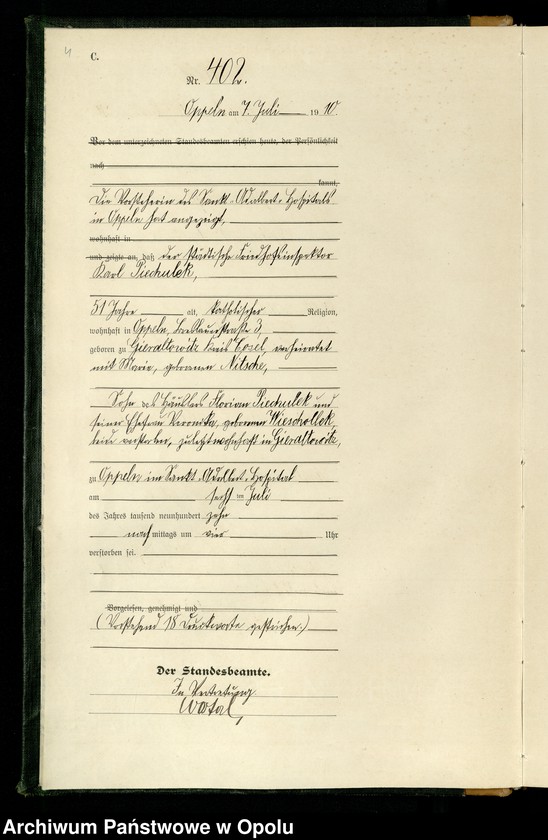 4
C.
Nr. 402.
Oppeln am 7. Juli 1910.
Vor dem unterzeichneten Standesbeamten erschien heute, der Persönlichkeit
nach
kannt,
Die Vorsteherin des Sankt-Adalbert-Hospitals
in Oppeln hat angezeigt,
wohnhaft in
und zeigte an, daß der städtische Friedhofsinspektor
Karl Piechulek,
51 Jahre alt, katholischer Religion,
wohnhaft in Oppeln, Breslauerstraße 3,
geboren zu Gieraltowitz Kreis Cosel, verheiratet
mit Marie, geborenen Nitsche,
Sohn des Häuslers Florian Piechulek und
seiner Ehefrau Veronika, geborenen Wieschollek,
beide verstorben, zuletzt wohnhaft in Gieraltowitz,
zu Oppeln im Sankt-Adalbert-Hospital
am sechsten Juli
des Jahres tausend neunhundert zehn
nachmittags um vier Uhr
verstorben sei.
Vorgelesen, genehmigt und
(Vorstehend 18 Druckworte gestrichen.)
Der Standesbeamte.
In Vertretung
Archiwum Państwowe w Opolu